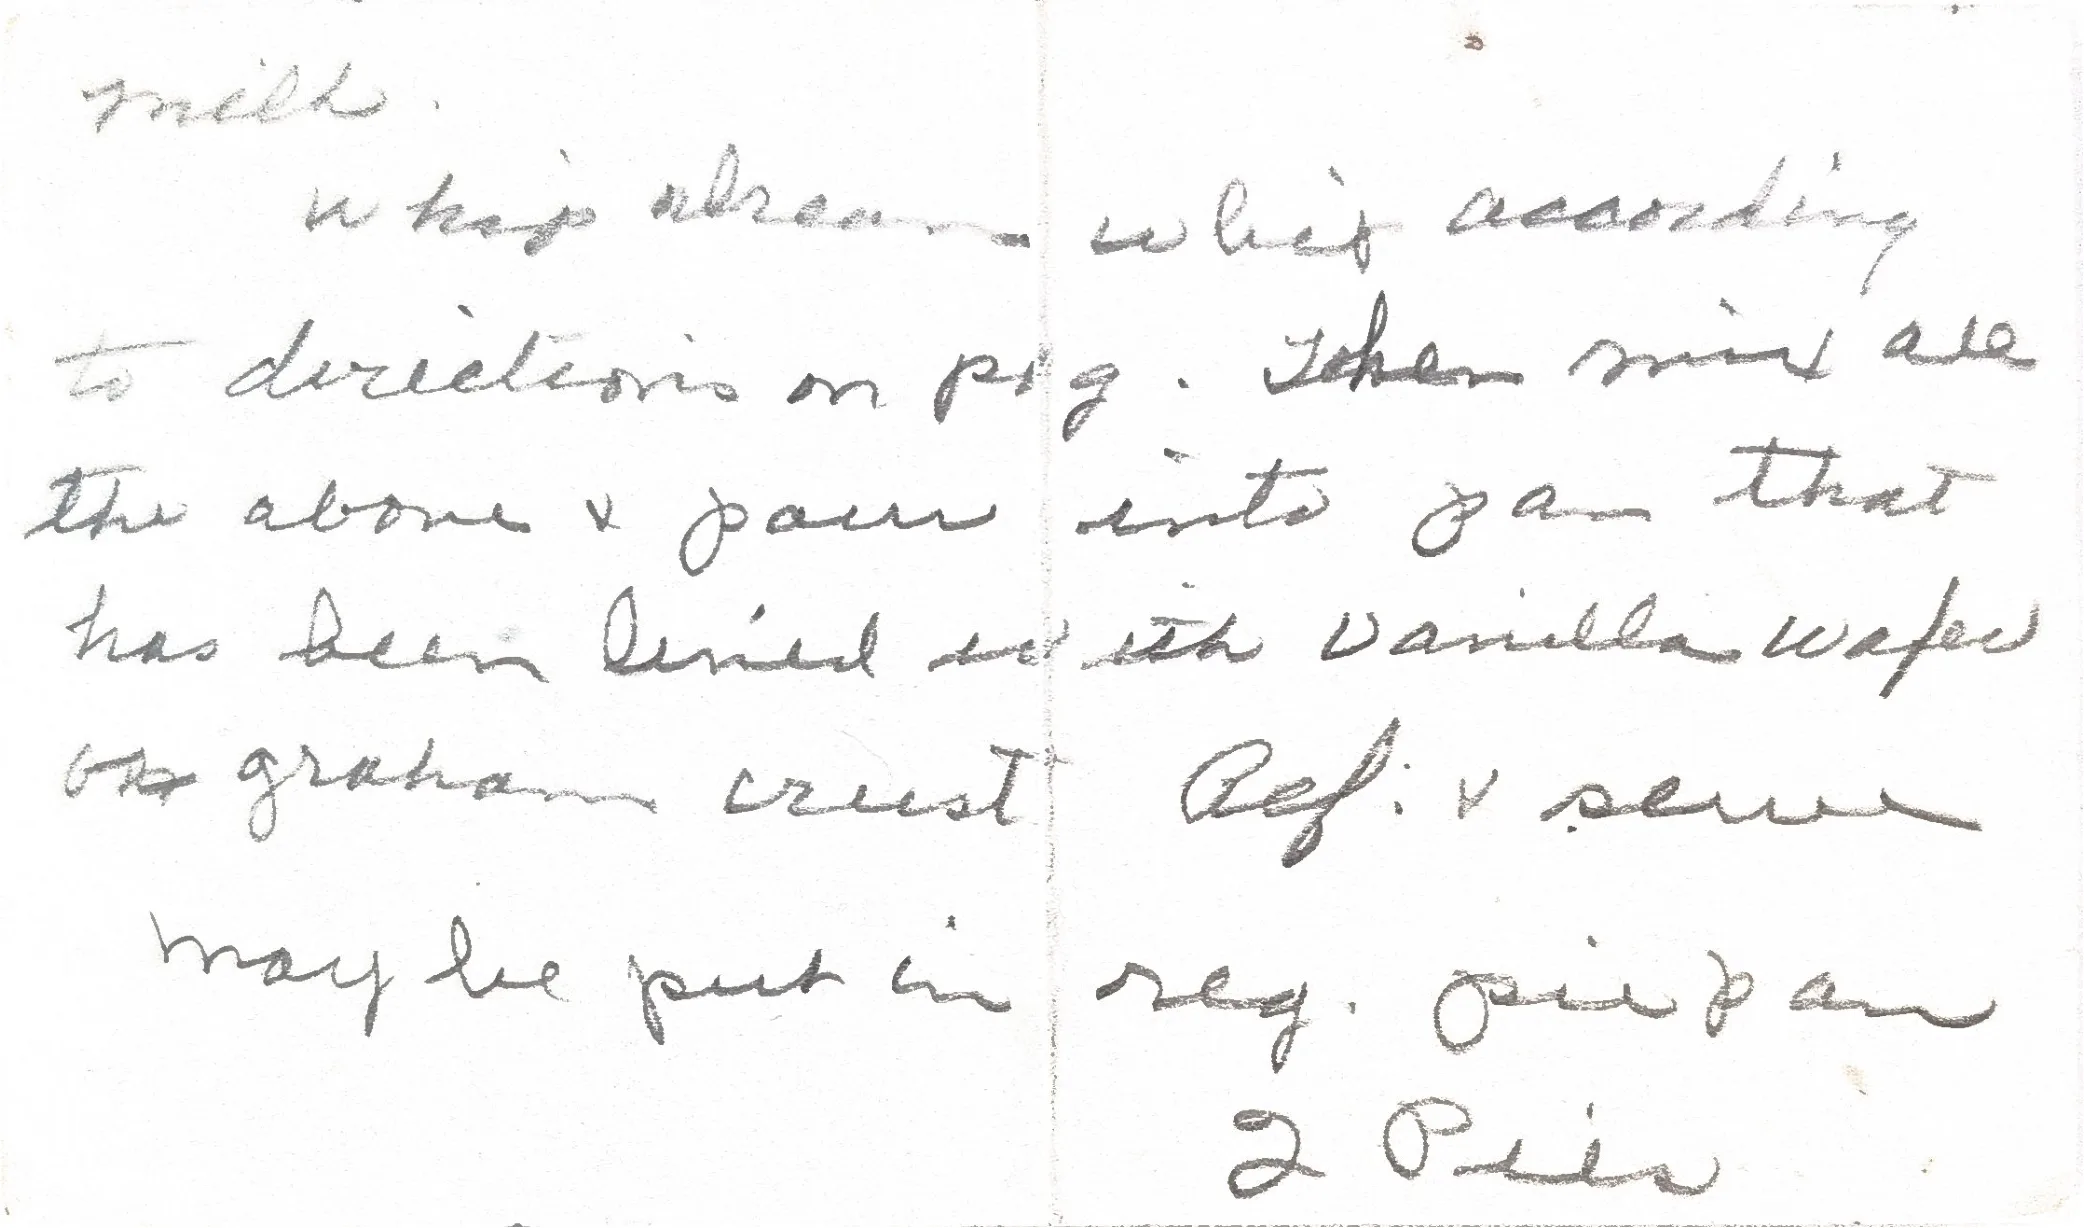 milk.
Whip dream whip according
to directions on pkg. Then mix all
the above & pour into pan that
has been lined with Vanilla Wafer
or graham crust Ref. & serve
May be put in reg. pie pan
2 Pies